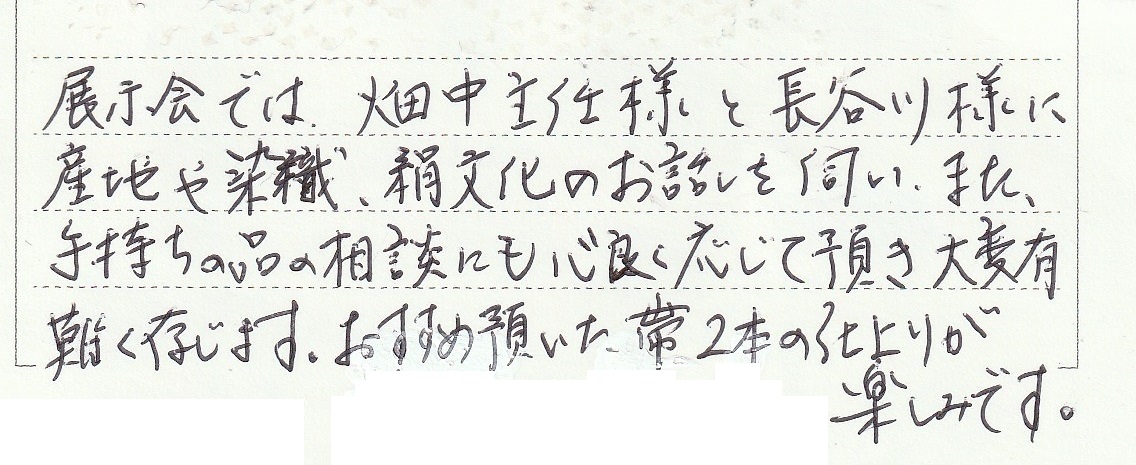 展示会では、畑中主任様と長谷川様に
産地や染織、絹文化のお話しを伺い、また、
手持ちの品の相談にも心良く応じて預き大変有
難く存じます。おすすめ預いた帯2本の仕上りが
楽しみです。